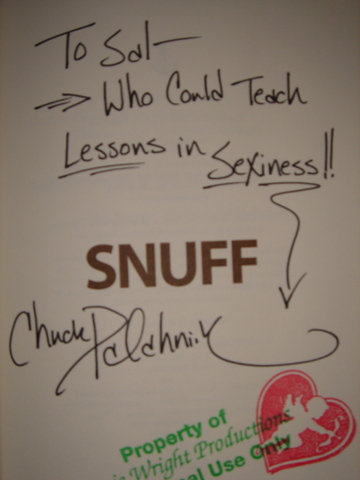 To Sal—
→ Who Could Teach
Lessons in Sexiness!!
SNUFF
Chuck Palahniuk
Property of
Wright Productions
Use Only